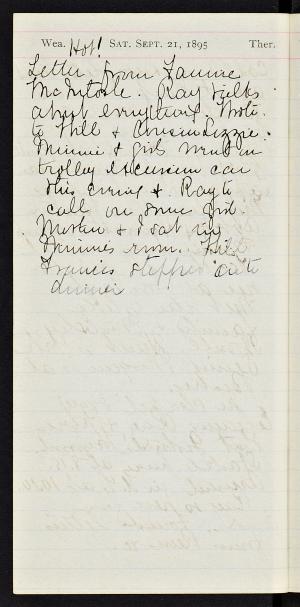 Wea. Hot! SAT. SEPT. 21, 1895 Ther.
Letter from Fannie
McIntosh. Ray talks
about everything. Wrote
to Will & Cousin Lizzie.
Minnie & girls went in
trolley excursion car
this evening & Ray to
call on some girl.
& I sat in
Minnie's room. Will
Francis stepped in to
dinner